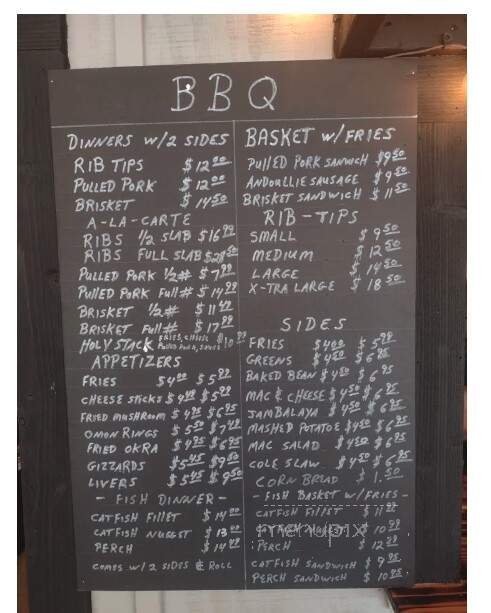 BBQ
DINNERS W/2 SIDES
RIB TIPS $12.00
PULLED PORK $12.00
BRISKET $14.50
A-LA-CARTE
RIBS 1/2 SLAB $16.99
RIBS FULL SLAB $28.50
PULLED PORK 1/2# $7.99
PULLED PORK FULL# $14.99
BRISKET 1/2# $11.49
BRISKET FULL# $17.99
HOLY STACK FRIES, CHEESE PULLED PORK, SAUCE $10.99
APPETIZERS
FRIES $4.00 $5.99
CHEESE STICKS $4.99 $5.99
FRIED MUSHROOM $4.95 $6.95
ONION RINGS $5.50 $7.49
FRIED OKRA $4.95 $6.95
GIZZARDS $5.45 $9.50
LIVERS $5.45 $9.50
- FISH DINNER -
CATFISH FILLET $14.00
CATFISH NUGGET $13.00
PERCH $14.99
COMES W/2 SIDES & ROLL
BASKET W/FRIES
PULLED PORK SANWICH $9.50
ANDOULLIE SAUSAGE $9.50
BRISKET SANDWICH $11.50
RIB-TIPS
SMALL $9.50
MEDIUM $12.50
LARGE $14.50
X-TRA LARGE $18.50
SIDES
FRIES $4.00 $5.99
GREENS $4.50 $6.95
BAKED BEAN $4.50 $6.95
MAC & CHEESE $4.50 $6.95
JAMBALAYA $4.50 $6.95
MASHED POTATOE $4.50 $6.95
MAC SALAD $4.50 $6.95
COLE SLAW $4.50 $6.95
CORN BREAD $1.50
- FISH BASKET W/FRIES -
CATFISH FILLET $11.99
CATFISH NUGGET $10.99
PERCH $12.29
CATFISH SANDWICH $9.95
PERCH SANDWICH $10.95
menupix